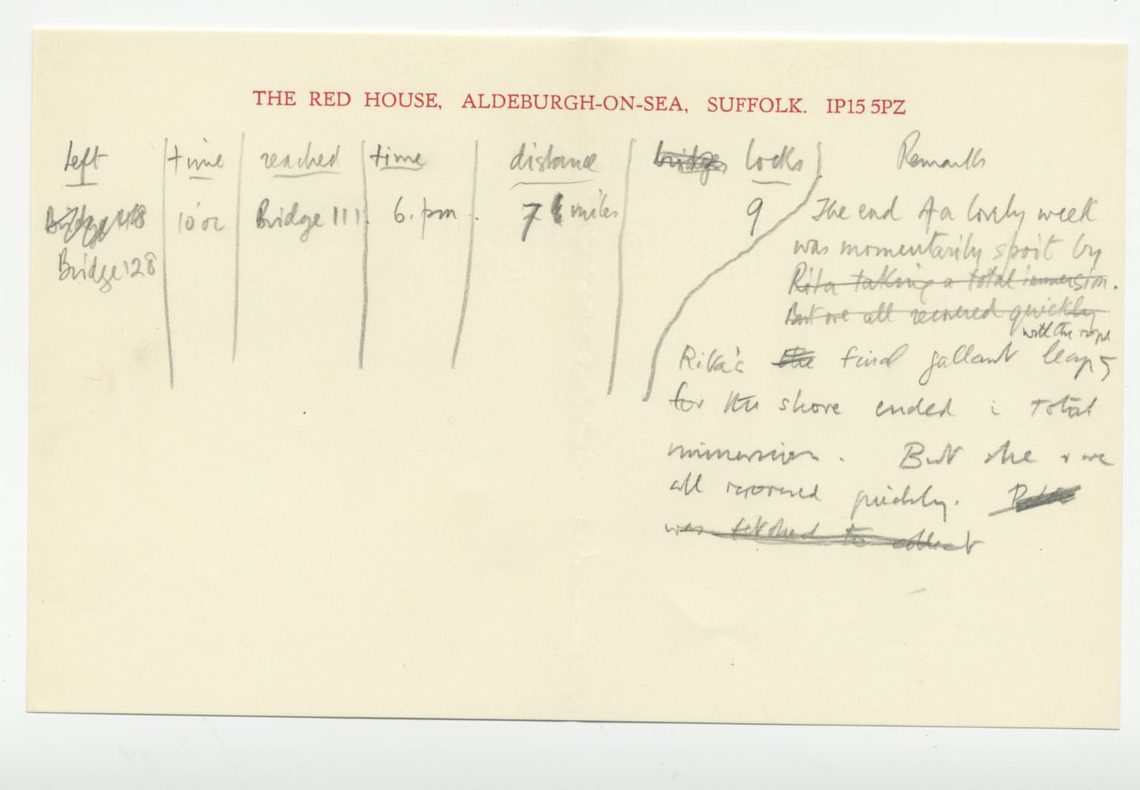 THE RED HOUSE, ALDEBURGH-ON-SEA, SUFFOLK. IP15 5PZ
Left time reached time distance bridges locks Remarks
Bridge 10 oc Bridge 111. 6. pm. 7 miles 9 The end of a lovely week
Bridge 128 was momentarily spoit by
Rita taking a total immersion.
But we all recovered quickly
with the rope
Rita's the final gallant leap
for the shore ended i total
immersion. But she + we
all recovered quickly.
was fetched to collect